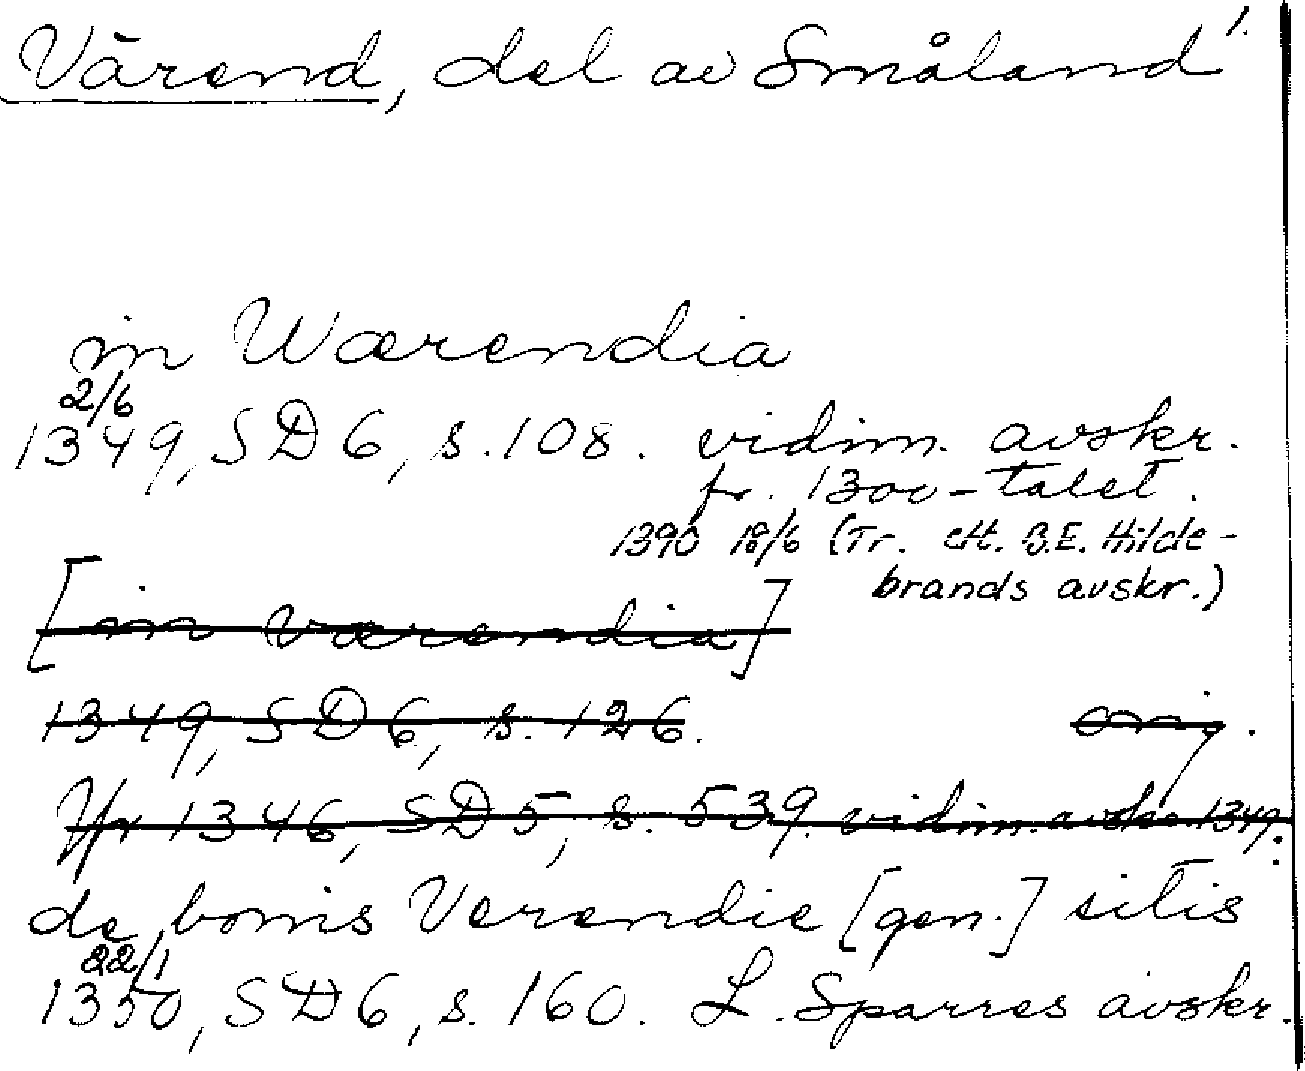 Värend, del av Småland 1.
in Wærendia
2/6
1349, SD 6, s. 108. vidim. avskr.
fr. 1300-talet.
1390 18/6 (Tr. eft. B.E. Hilde-
brands avskr.)
[in Værendia]
1349, SD 6, s. 126. orig.
Jfr 1346, SD 5, s. 539. vidim. avskr. 1349.
de bonis Verendie [gen.] sitis
22/1
1350, SD 6, s. 160. L. Sparres avskr.